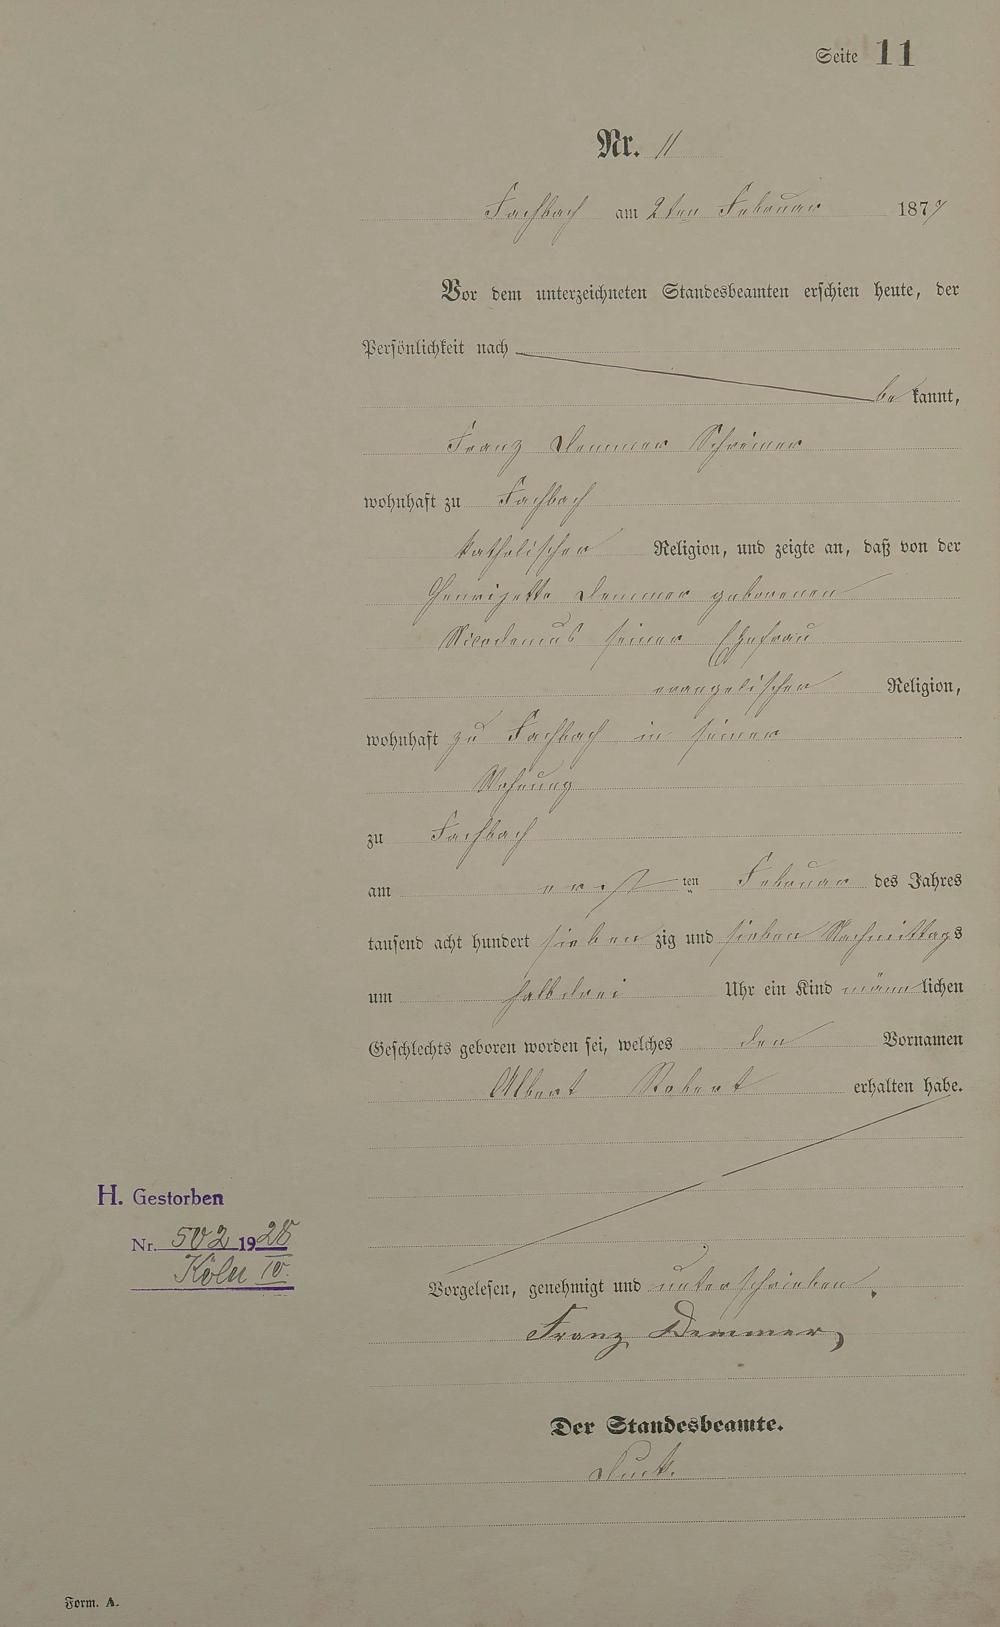 Seite 11
Nr. 11
Fachbach am 2ten Februar 1877
Vor dem unterzeichneten Standesbeamten erschien heute, der
Persönlichkeit nach
be kannt,
Franz Demmer Schreiner
wohnhaft zu Fachbach
katholischer Religion, und zeigte an, daß von der
Henrijette Demmer geborenen
Nicodemus seiner Ehefrau
evangelischer Religion,
wohnhaft zu Fachbach in seiner
Wohnung
zu Fachbach
am ersten Februar des Jahres
tausend acht hundert sieben zig und sieben Nachmittags
um halb drei Uhr ein Kind männlichen
Geschlechts geboren worden sei, welches den Vornamen
Albert Robert erhalten habe.
H. Gestorben
Nr. 502 1928
Köln IV.
Vorgelesen, genehmigt und unterschrieben.
Franz Demmer,
Der Standesbeamte.
Form. A.